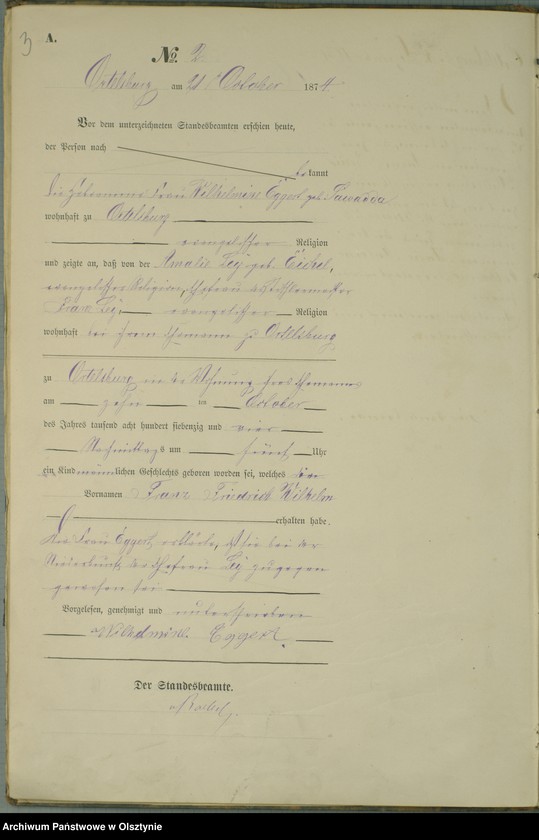 3
A.
No. 2
Ortelsburg am 21 October 1874
Vor dem unterzeichneten Standesbeamten erschien heute,
der Person nach
bekannt
die Hebamme Frau Wilhelmine Eggert geb.
wohnhaft zu Ortelsburg
evangelischer Religion
und zeigte an, daß von der Amalie Ley geb. Eichel,
evangelischer Religion, Ehefrau des Tischlermeister
Franz Ley, evangelischer Religion
wohnhaft bei ihrem Ehemann zu Ortelsburg
zu Ortelsburg in der Wohnung ihres Ehemannes
am zehn ten October
des Jahres tausend acht hundert siebenzig und vier
Nachmittags um fünf Uhr
ein Kind männlichen Geschlechts geboren worden sei, welches die
Vornamen Franz Friedrich Wilhelm
erhalten habe.
Die Frau Eggert erklärte, daß sie bei der
Niederkunft der Ehefrau Ley zugegen
gewesen sei
Vorgelesen, genehmigt und unterschrieben
Wilhelmine Eggert.
Der Standesbeamte.
Archiwum Państwowe w Olsztynie